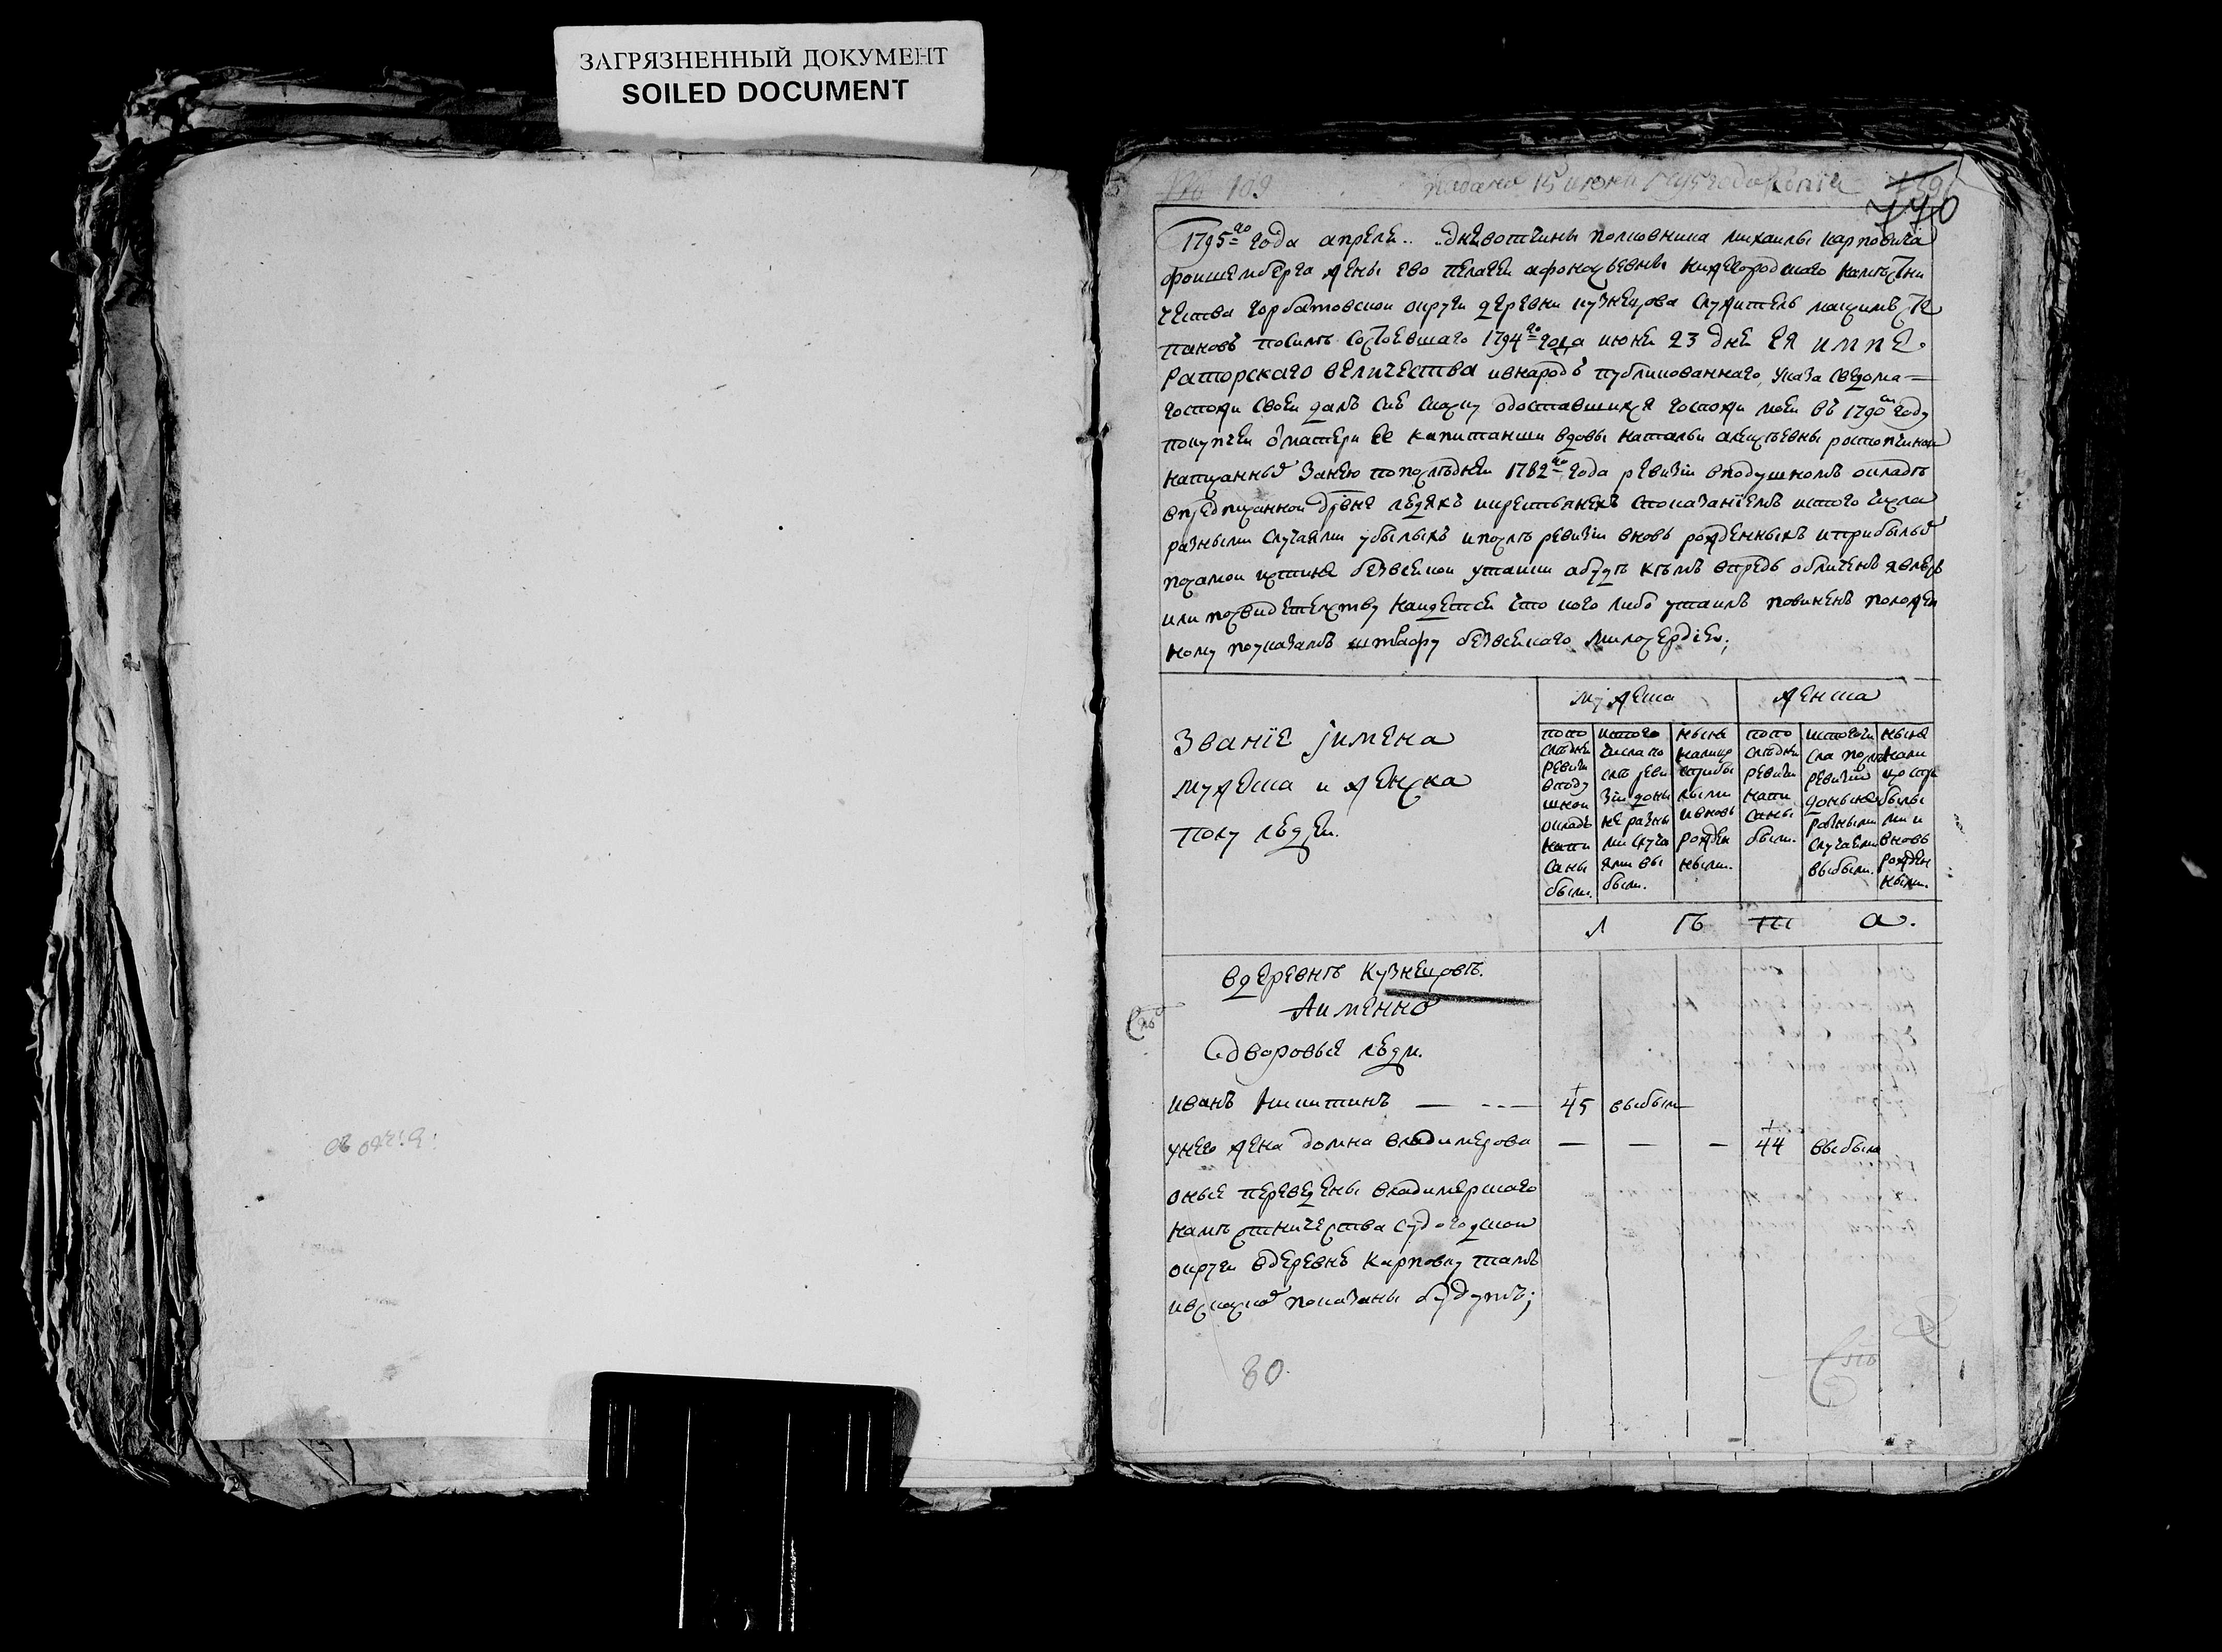 ЗАГРЯЗНЕННЫЙ ДОКУМЕНТ
SOILED DOCUMENT
109 подана 15 июня 1795 года Копiя
770
1795го года апреля .. дня вотчины полковника михаилы карповича
жены ево пелагеи афонасьевны нижегородскаго намѣстни
чества горбатовской округи деревни кузнецова служитель максимъ сте
пановъ посилѣ состоевшаго 1794го года июня 23 дня ея импе
раторскаго величества ивнародъ публикованнаго указа сведома
госпожи своей далъ сию скаску одоставшихся госпожи моей въ 1790м году
покупкеи отматери ее капитанши вдовы натальи алексѣевны
написанныхъ занею попослѣдней 1782го года ревизiи вподушномъ окладѣ
впредписанной дрвне людяхъ икрестьянехъ споказанiемъ истого числа
разными случаями убылыхъ ипослѣ ревизiи вновь рожденныхъ иприбылыхъ
посамой истине безвсякой утайки абудѣ кѣмъ впредь обличенъ явлюсь
или посвидетелству найдется что кого либо утаилъ повиненъ положен
ному поуказамъ штрафу безвсякаго милосердiя;
Званiе iимена
мужеска и женска
полу людей.
мужеска
женска
попо
слѣдней
ревизiи
вподу
шной
окладъ
напи
саны
были.
истого
числа по
слѣ реви
зiи доны
не разны
ми случа
ями вы
были.
ныне
налицо
сприбы
лыми
ивновь
рожден
ными.
попо
слѣдней
ревизiи
напи
саны
были.
истого чи
сла послѣ
ревизiи
доныне
разными
случаями
выбыли.
ныне
нали
цо спри
былы
ми и
вновь
рожден
ными.
л ѣ т а.
вдеревнѣ Кузнецовѣ.
Аименно
дворовые люди.
иванъ никитинъ — 45 выбылъ
унего жена домна владимерова — — — 44 выбыла
оные переведены владимерскаго
намѣстничества судогодской
округи вдеревню Карповку тамъ
ивскаске показаны будутъ;
80.